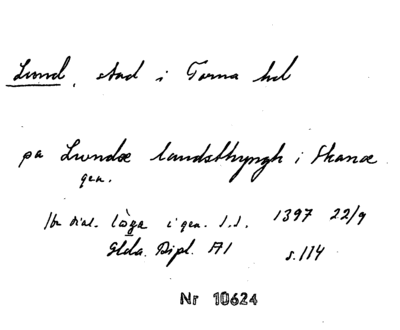 Lund, stad i Torna hd
pa Lundæ landsthyngh i Skanæ
gen.
i gen. 1397 22/9
Dipl. A1 s. 114
Nr 10624